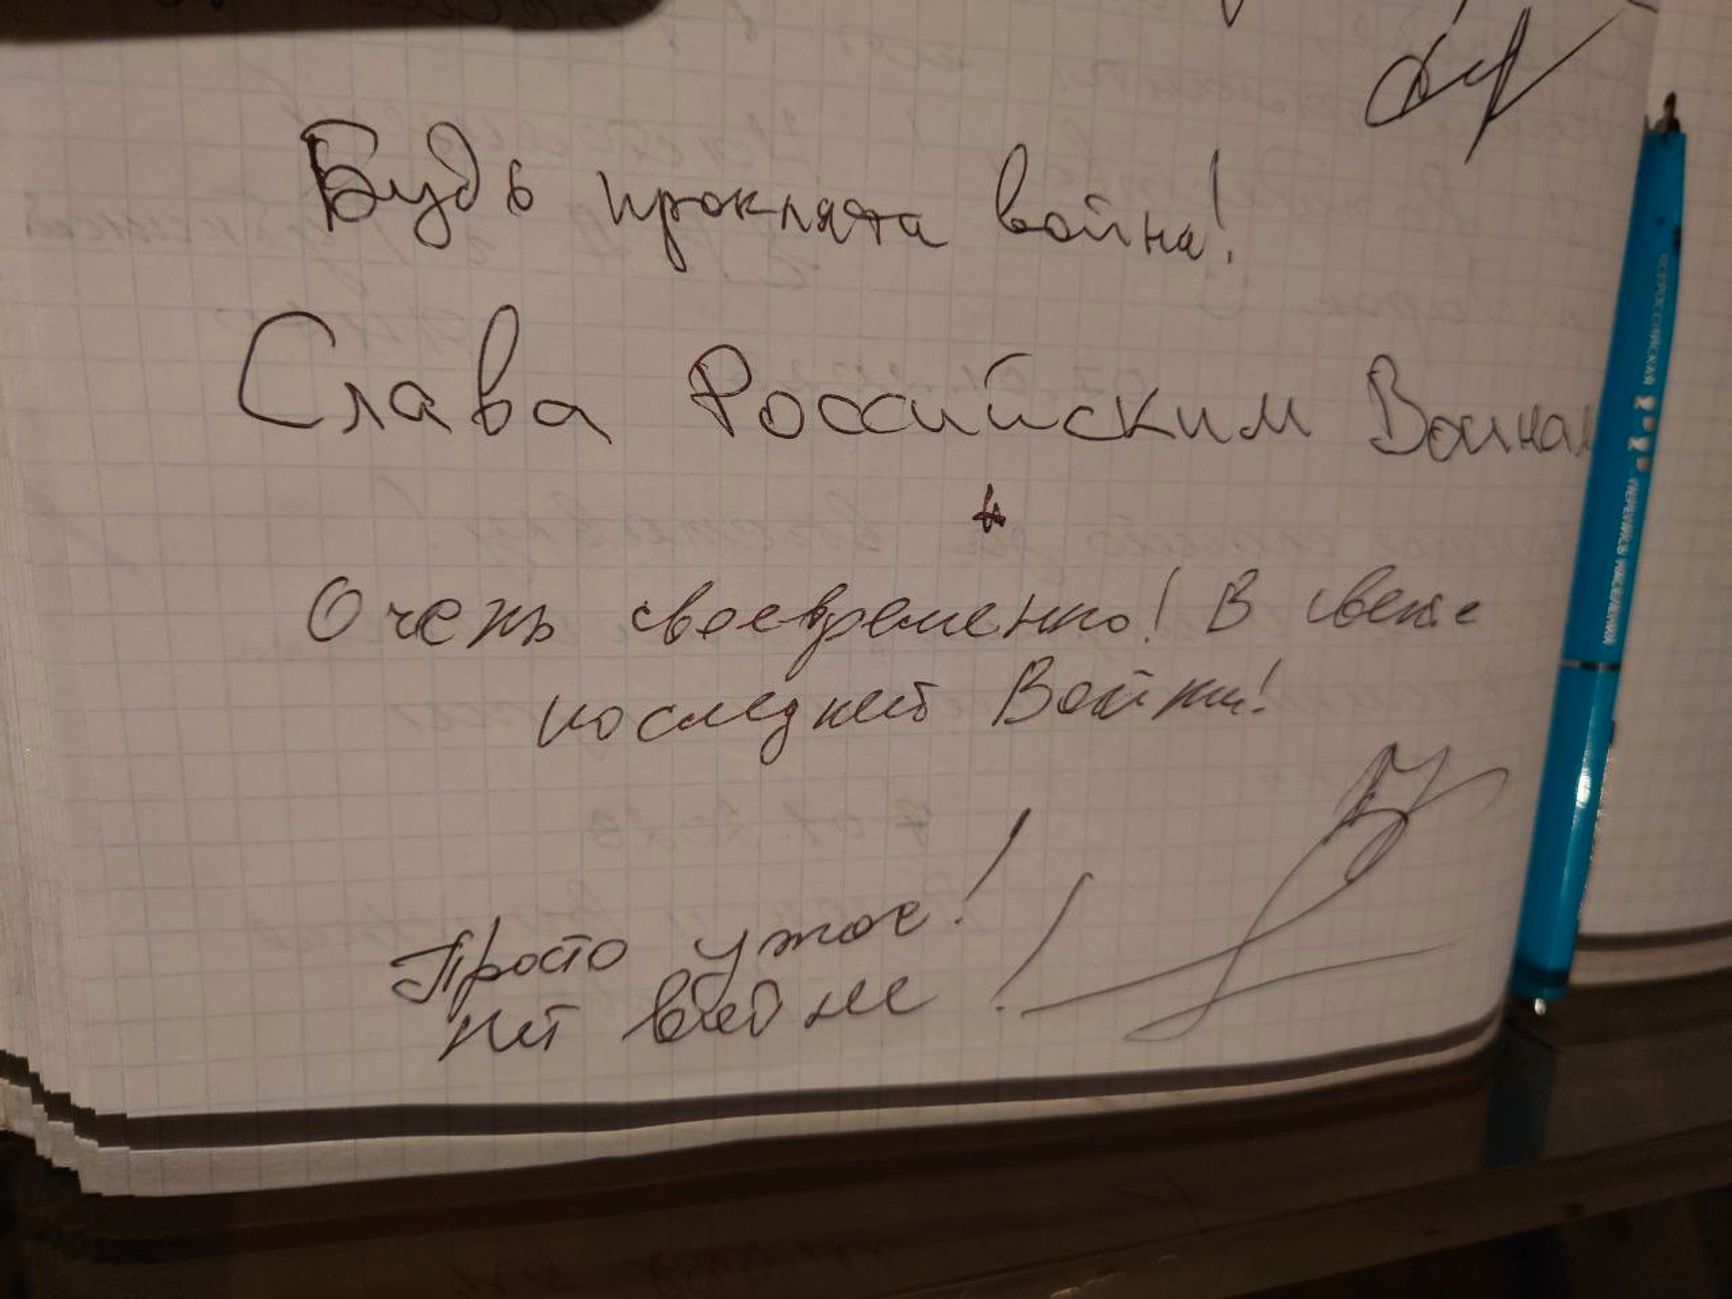 Будь проклята война!
Слава Российским Воинам
Очень своевременно! В свете
последней Войны!
Просто ужас!
Нет войне!
ВСЕРОССИЙСКАЯ
ПЕРЕПИСЬ НАСЕЛЕНИЯ